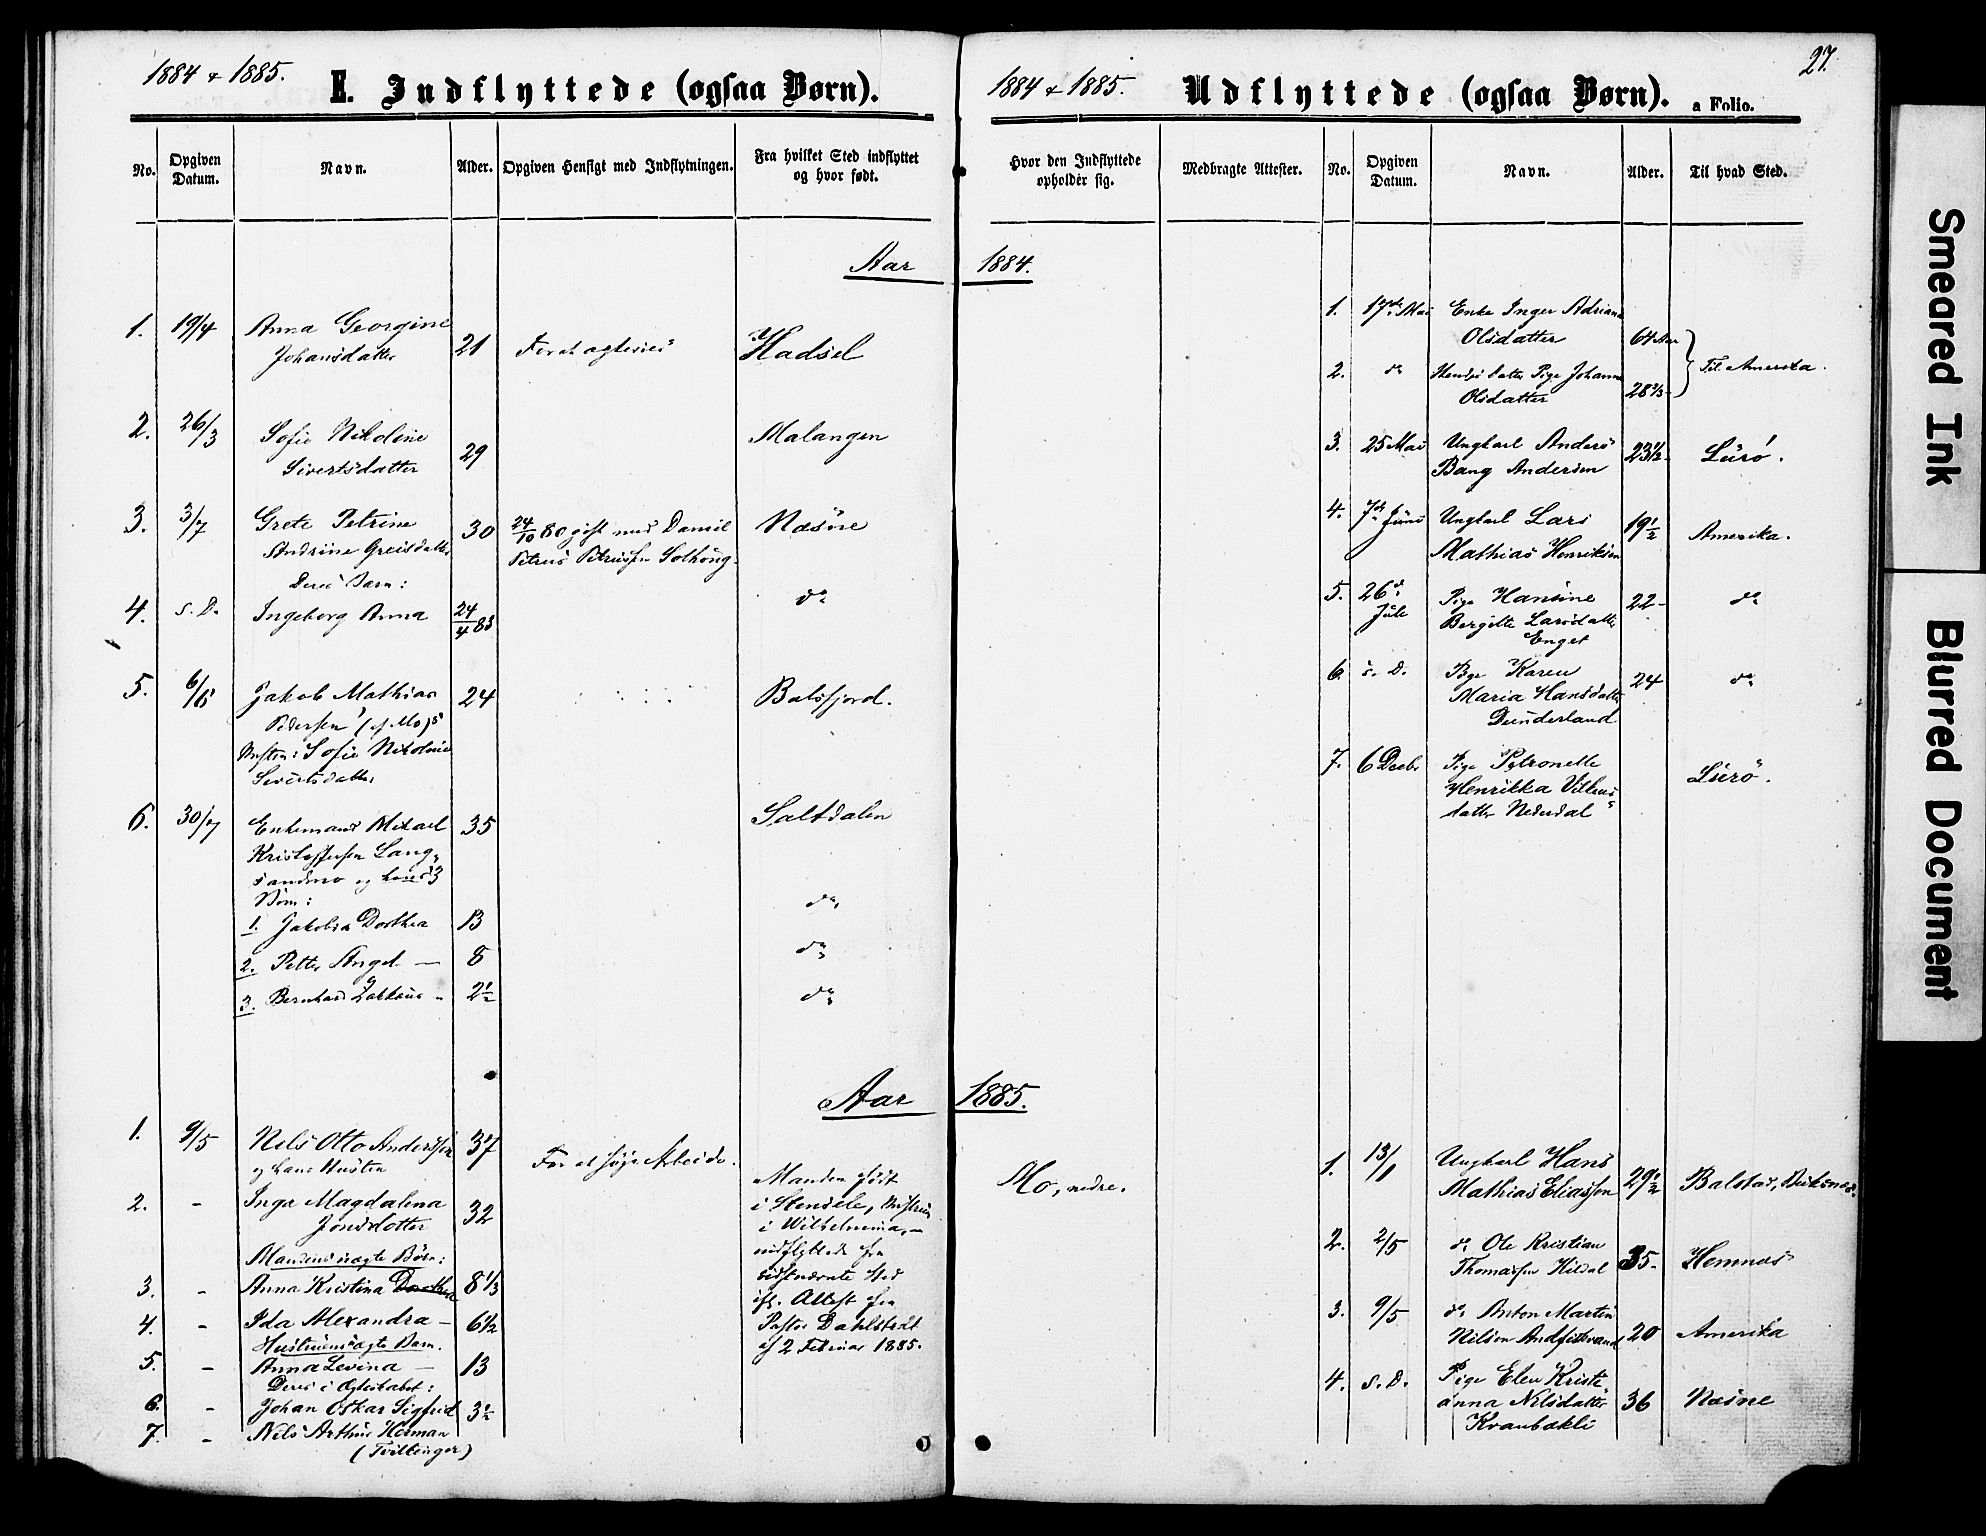 1884 & 1885.
E. Indflyttede (ogsaa Børn).
No.
Opgiven Datum.
Navn.
Alder.
Opgiven Hensigt med Indflytningen.
Fra hvilket Sted indflyttet
og hvor født.
Aar
1. 19/4 Anna Georgine
Johansdatter 21 For at Hadsel
2. 26/3 Sofie Nikoline Malangen
Sivertsdatter 29
3. 3/7 Grete Petrine 30 24/10 80 gift med Daniel Næsne
Andrine Greisdatter Petrus Petersen Solhoug
Deres Barn:
4. s. D. Ingeborg Anna 24/4 83 do
5. 6/6 Jakob Mathias 24 Balsfjord.
Pedersen (af Mo)
Sofie Nikoline
Sivertsdatter
6. 30/7 Enkemand Mikael 35 Saltdalen
Kristoffersen Lang-
sandmo og hans 3
Børn:
1. Jakobia Dorthea 13 do
2. Petter Angel — 8 do
3. Bernhard Zakkeus - 2½ do
Aar
1. 9/5 Nils Otto Andersson 37 For at søge Arbeide.
og hans Hustru
2. - Inga Magdalena
Jonsdotter 32
Mandens uægte Børn:
3. - Anna Kristina Dorthea 8 1/3
4. - Ida Alexandra — 6½
Hustruens uægte Barn.
5. - Anna Levina — 13
Deres i Ægteskabet:
6. - Johan Oskar Sigfrid 3½
7. - Nils Arthur Herman
(Tvillinger)
Manden født
i Stensele, Hustruen
i Wilhelmina, -
indflyttede fra
sidstnævnte Sted
ifl. Attest fra
Pastor Dahlstedt
af 2 Februar 1885.
1884 & 1885.
Udflyttede (ogsaa Børn).
a Folio.
27.
Hvor den Indflyttede
opholder sig.
Medbragte Attester.
No.
Opgiven Datum.
Navn.
Alder.
Til hvad Sted.
1884.
1. 17de Mai Enke Inger Adriana
Olsdatter 64 Aar
Til Amerika.
2. do Hendes Datter Pige Johanna
Olsdatter 28 2/3
3. 25 Mai Ungkarl Anders
Bang Andersen 23½ Lurø.
4. 7de Juni Ungkarl Lars
Mathias Henriksen 19½ Amerika.
5. 26de Pige Hansine 22 do
Juli Bergitte Larsdatter
Enget
6. s. D. Pige Karen
Maria Hansdatter 24 do
Dunderland
7. 6 Decbr Pige Petronelle
Henrikka Vilhems- Lurø.
datter Nederdal
1885.
Mo, nedre.
1. 13/1 Ungkarl Hans
Mathias Eliassen 29½ Balstad, Buksnes.
2. 2/5 do Ole Kristian
Thomassen Hildal 35 Hemnæs
3. 9/5 do Anton Martin
Nilsen Andfiskvand 20 Amerika
4. s. D. Pige Elen Kristi-
anna Nilsdatter 36 Næsne
Kvanbækli
Smeared Ink
Blurred Document